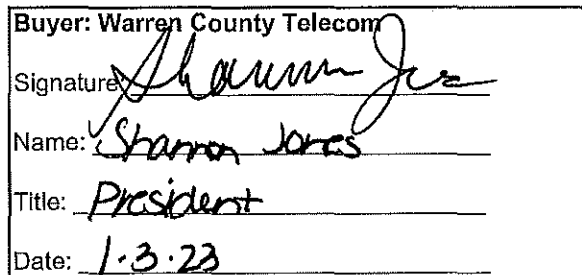 Buyer: Warren County Telecom
Signature
Name: Shannon Jones
Title: President
Date: 1.3.23